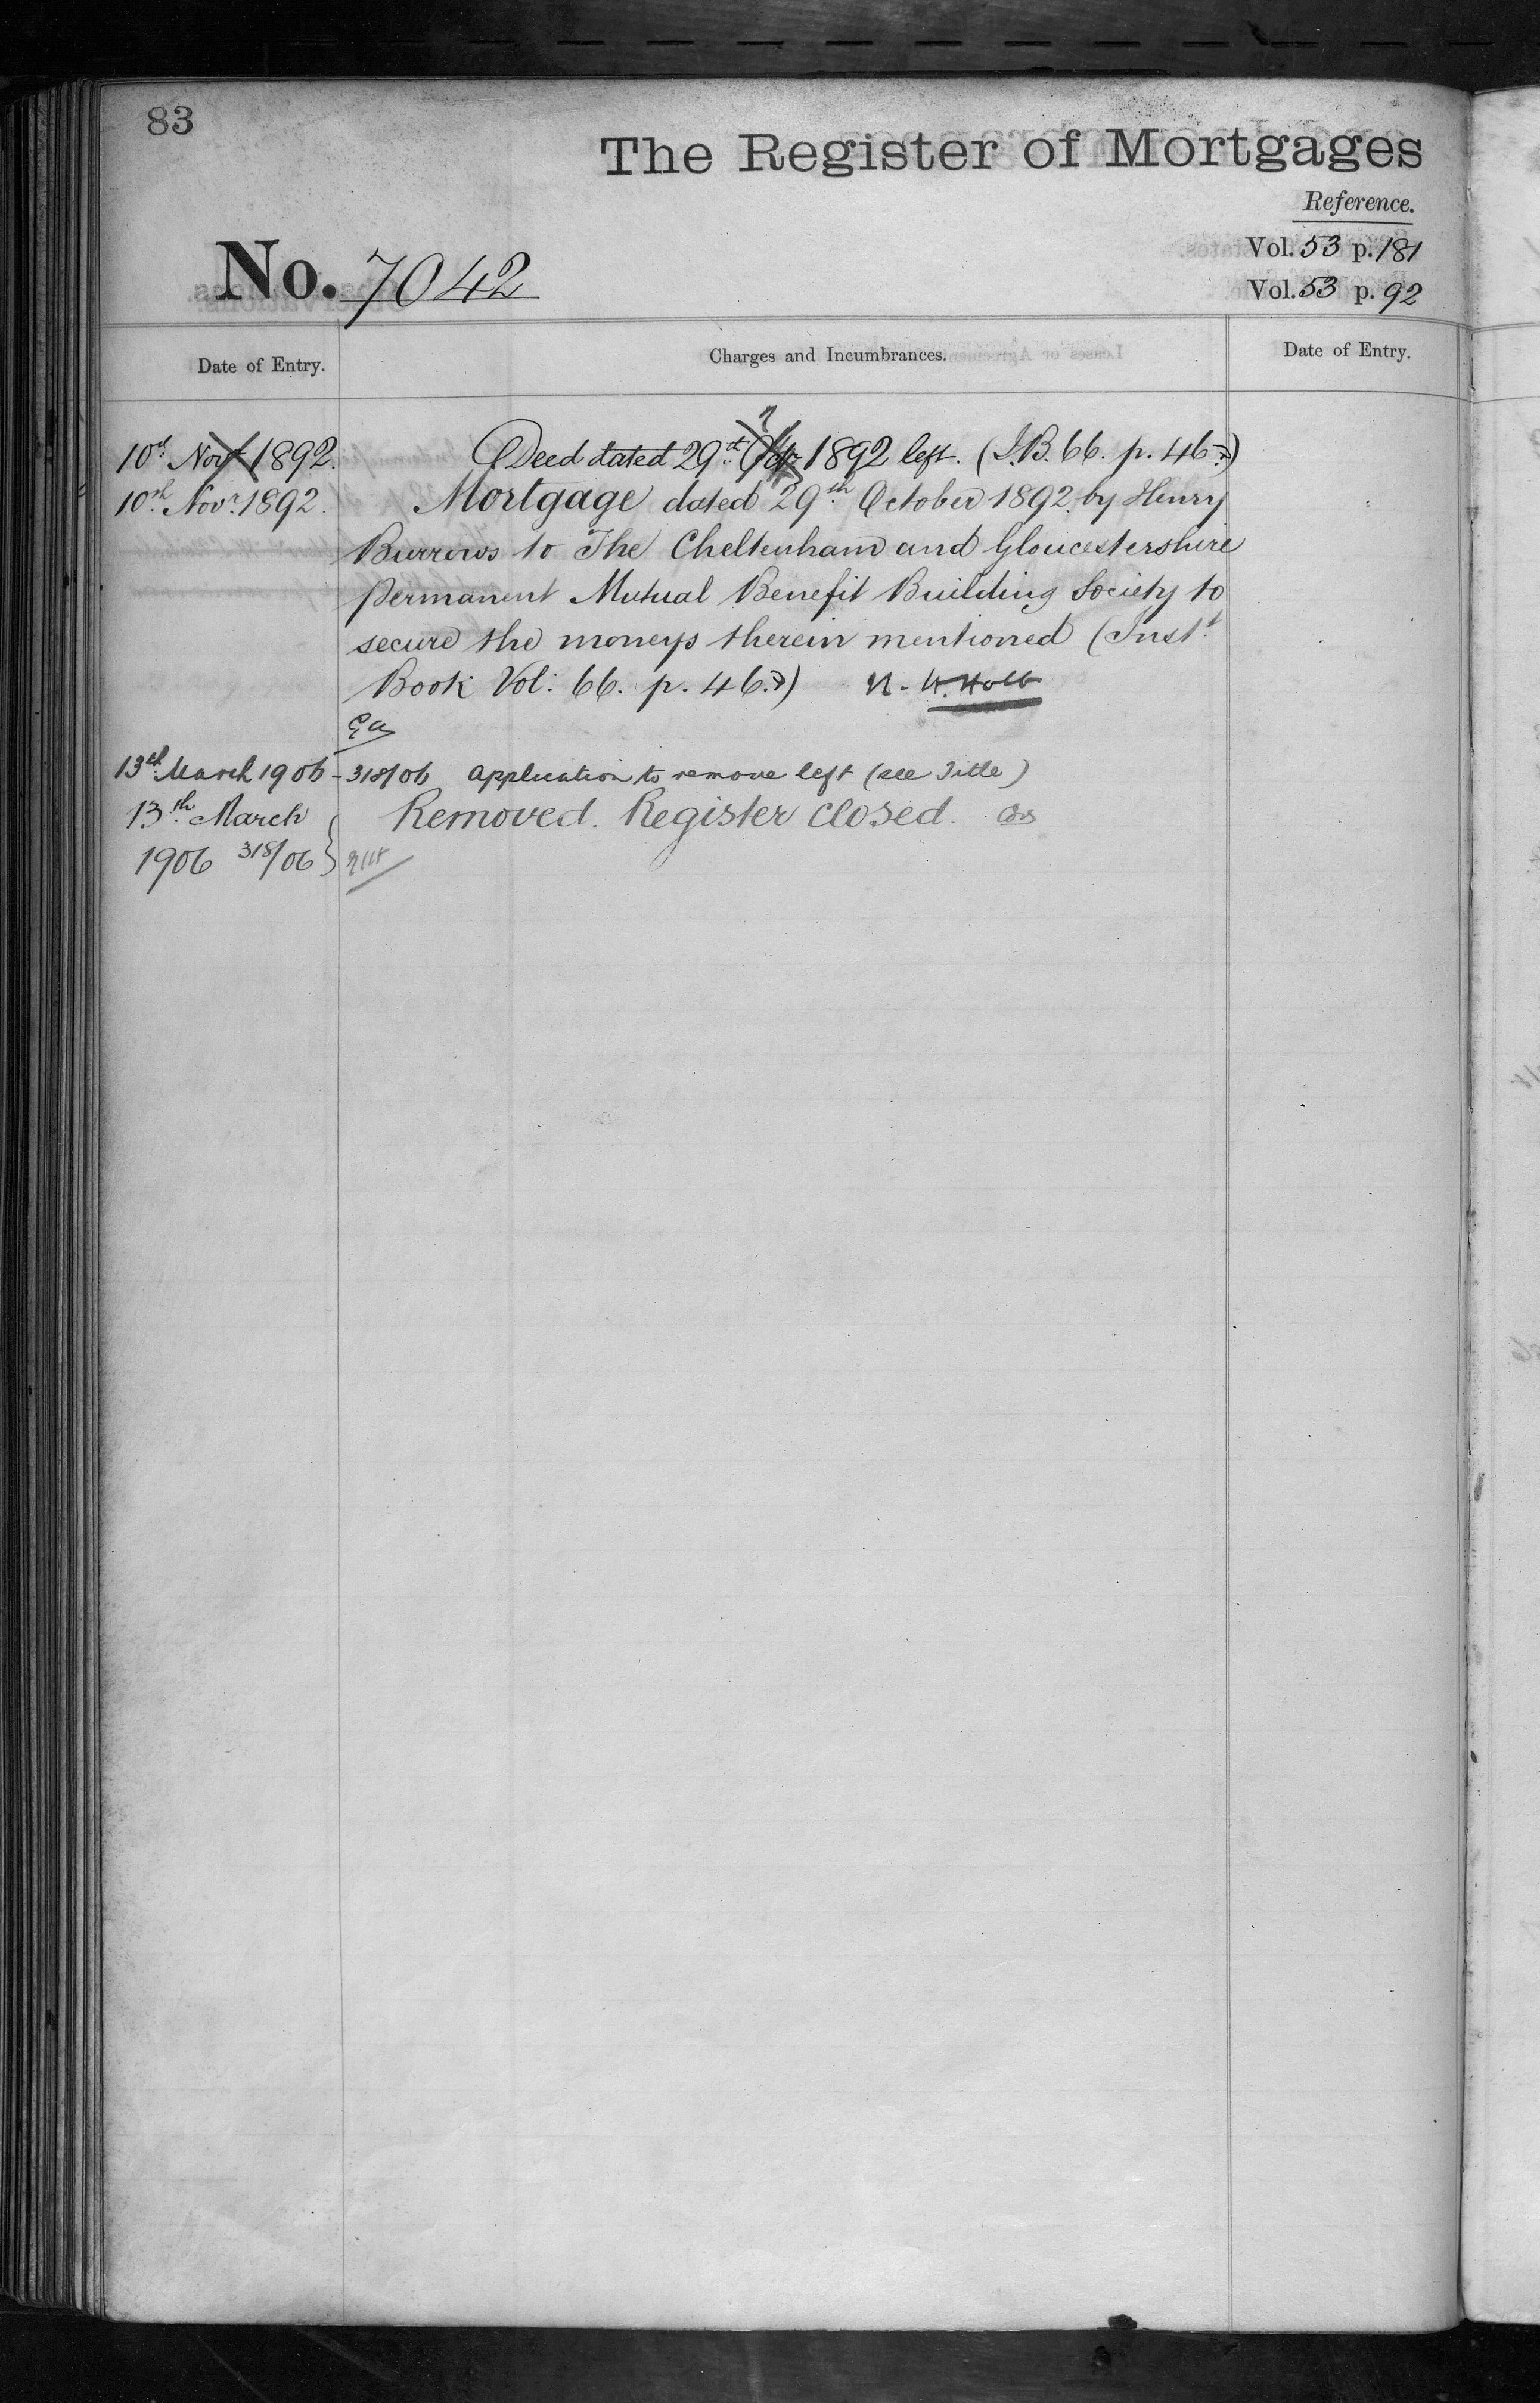 83
The Register of Mortgages
Reference.
Vol. 53 p. 181
No. 7042
Vol. 53 p. 92
Date of Entry.
Charges and Incumbrances.
Date of Entry.
10th Novr 1892. Deed dated 29th Octr 1892 left. (I.B. 66. p. 467)
10th Novr 1892. Mortgage dated 29th October 1892 by Henry
Burrows to The Cheltenham and Gloucestershire
Permanent Mutual Benefit Building Society to
secure the moneys therein mentioned (Inst.t
Book Vol: 66. p. 467)
13th March 1906 - 318/06 Application to remove left (see Title)
13th March Removed. Register closed.
1906 318/06